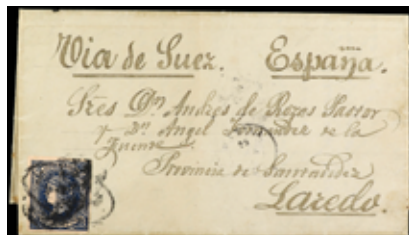 Via de Suez. España.
Sres Dn. Andres de Rozas Pastor
y Dn. Angel Fernandez de la
Fuente
Provincia de Santander
Laredo.